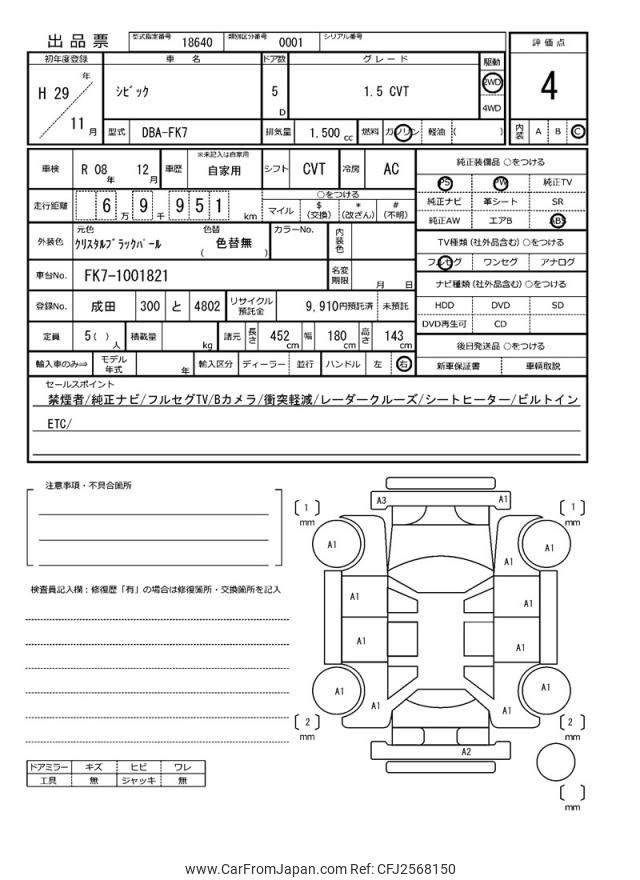 出品票 型式指定番号 18640 類別区分番号 0001 シリアル番号
評価点
4
内装 A B C
初年度登録 車名 ドア数 グレード 駆動
H 29 年 11 月 ｼﾋﾞｯｸ 5 D 1.5 CVT 2WD
4WD
型式 DBA-FK7 排気量 1.500 cc 燃料 ガソリン 軽油 ( )
車検 R 08 年 12 月 車歴 ※未記入は自家用 自家用 シフト CVT 冷房 AC
走行距離 6 万 9 千 9 5 1 km
○をつける
マイル $ (交換) * (改ざん) # (不明)
外装色 元色 ｸﾘｽﾀﾙﾌﾞﾗｯｸﾊﾟｰﾙ 色替 ( 色替無 ) カラーNo. 内装色
車台No. FK7-1001821 名変期限 月 日
登録No. 成田 300 と 4802 リサイクル預託金 9,910円預託済 未預託
定員 5( ) 人 積載量 kg 諸元 長さ 452 cm 幅 180 cm 高さ 143 cm
輸入車のみ⇒ モデル年式 年 輸入区分 ディーラー 並行 ハンドル 左 右
純正装備品 ○をつける
PS PW 純正TV
純正ナビ 革シート SR
純正AW エアB ABS
TV種類 (社外品含む) ○をつける
フルセグ ワンセグ アナログ
ナビ種類 (社外品含む) ○をつける
HDD DVD SD
DVD再生可 CD
後日発送品 ○をつける
新車保証書 車輌取説
セールスポイント
禁煙者/純正ナビ/フルセグTV/Bカメラ/衝突軽減/レーダークルーズ/シートヒーター/ビルトイン
ETC/
注意事項・不具合箇所
検査員記入欄：修復歴「有」の場合は修復箇所・交換箇所を記入
ドアミラー キズ ヒビ ワレ
工具 無 ジャッキ 無
A3 A1
[ 1 ] mm [ 1 ] mm
A1 A1 A1
A1 A1
A1 A1
A1 A1
A1 A1
[ 2 ] mm [ 2 ] mm
A2
[ ] mm
www.CarFromJapan.com Ref: CFJ2568150